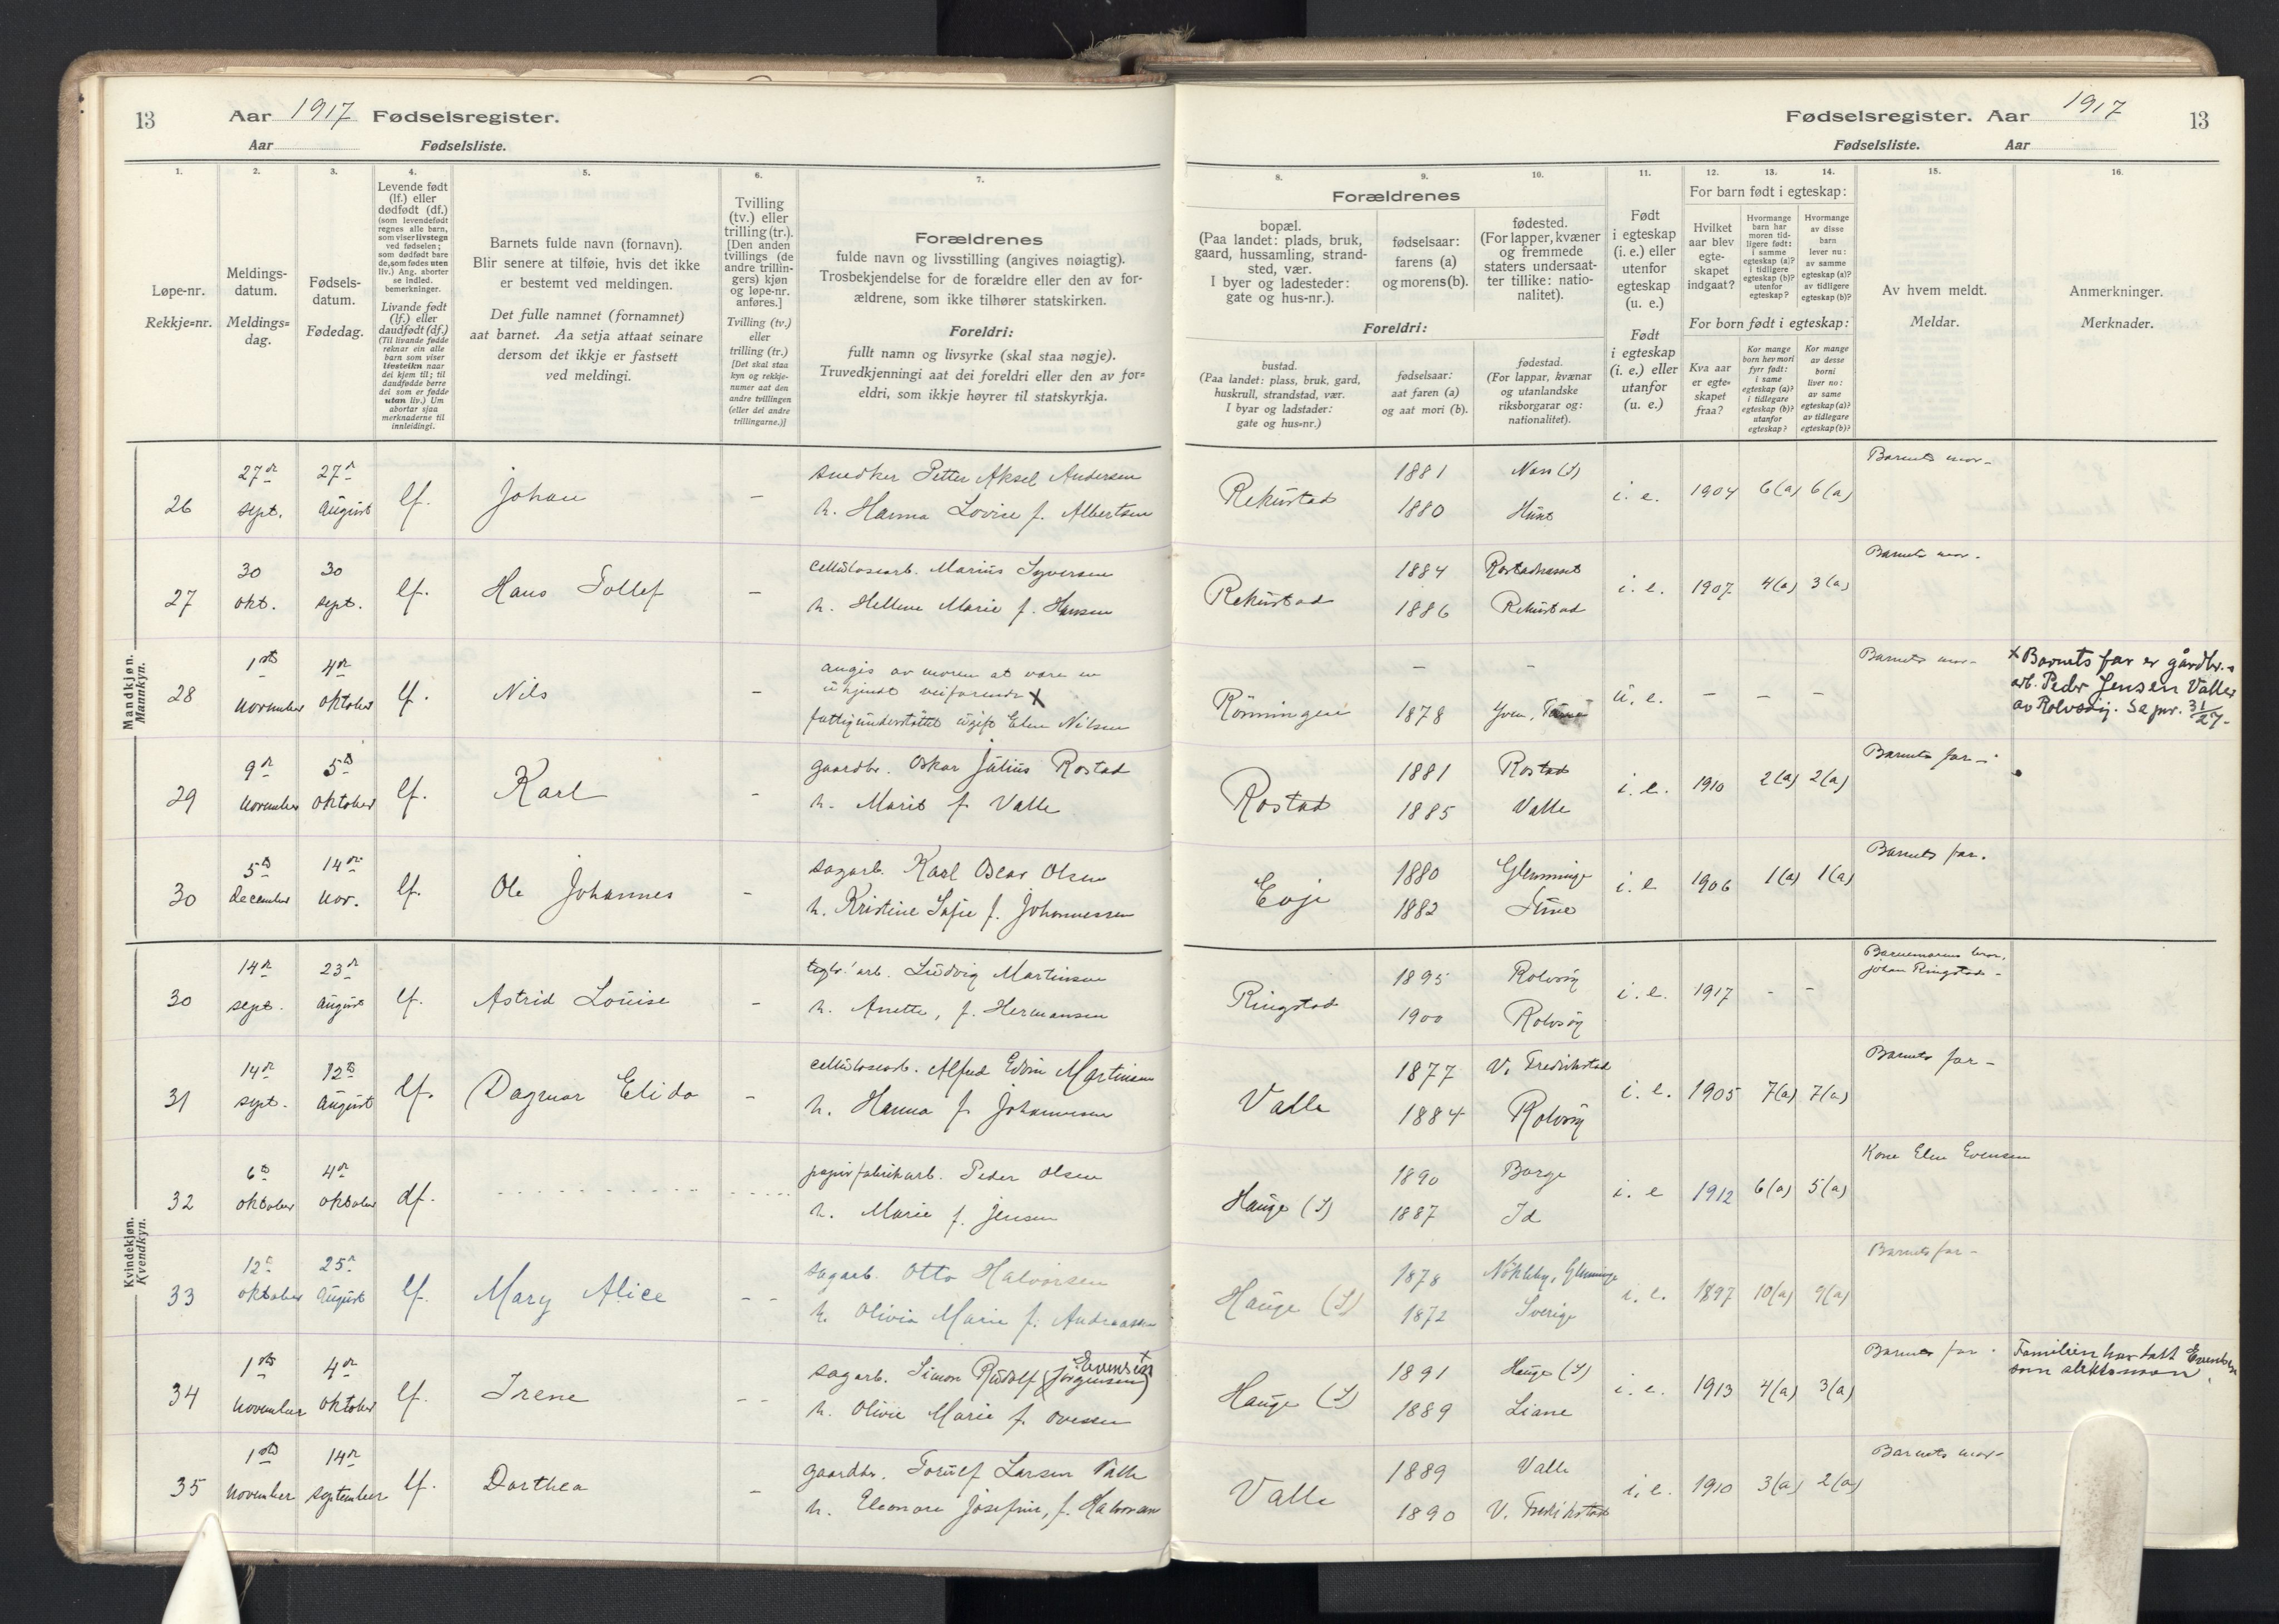 13 Aar 1917 Fødselsregister.
Aar Fødselsliste.
Fødselsregister. Aar 1917 13
Fødselsliste. Aar
1. 2. 3. 4. 5. 6. 7.
Løpe-nr.
Rekkje=nr.
Meldings-
datum.
Meldings=
dag.
Fødsels-
datum.
Fødedag.
Levende født
(lf.) eller
dødfødt (df.)
(som levendefødt
regnes alle barn,
som viser livstegn
ved fødselen;
som dødfødt bare
de, som fødes uten
liv.) Ang. aborter
se indled.
bemerkninger.
Livande født
(lf.) eller
daudfødt (df.)
(Til livande fødde
reknar ein alle
barn som viser
livsteikn naar
dei kjem til; til
daudfødde berre
dei som er fødde
utan liv.) Um
abortar sjaa
merknaderne til
innleidingi.
Barnets fulde navn (fornavn).
Blir senere at tilføie, hvis det ikke
er bestemt ved meldingen.
Det fulle namnet (fornamnet)
aat barnet. Aa setja attaat seinare
dersom det ikkje er fastsett
ved meldingi.
Tvilling
(tv.) eller
trilling (tr.).
[Den anden
tvillings (de
andre trillin-
gers) kjøn
og løpe-nr.
anføres.]
Tvilling (tv.)
eller
trilling (tr.)
[Det skal staa
kyn og rekkje-
numer aat den
andre tvillingen
(eller dei andre
trillingarne.)]
Forældrenes
fulde navn og livsstilling (angives nøiagtig).
Trosbekjendelse for de forældre eller den av for-
ældrene, som ikke tilhører statskirken.
Foreldri:
fullt namn og livsyrke (skal staa nøgje).
Truvedkjenningi aat dei foreldri eller den av for=
eldri, som ikkje høyrer til statskyrkja.
8. 9. 10. 11. 12. 13. 14. 15. 16.
Forældrenes
bopæl.
(Paa landet: plads, bruk,
gaard, hussamling, strand-
sted, vær.
I byer og ladesteder:
gate og hus-nr.).
fødselsaar:
farens (a)
og morens (b).
fødested.
(For lapper, kvæner
og fremmede
staters undersaat-
ter tillike: natio-
nalitet).
Foreldri:
bustad.
(Paa landet: plass, bruk, gard,
huskrull, strandstad, vær.
I byar og ladstader:
gate og hus=nr.)
fødselsaar:
aat faren (a)
og aat mori (b).
fødestad.
(For lappar, kvænar
og utanlandske
riksborgarar og:
nationalitet).
Født
i egteskap
(i. e.) eller
utenfor
egteskap
(u. e.)
Født
i egteskap
(i. e.) eller
utanfor
(u. e.)
For barn født i egteskap:
Hvilket
aar blev
egte-
skapet
indgaat?
Hvormange
barn har
moren tid-
ligere født:
i samme
egteskap (a)?
i tidligere
egteskap (b)?
utenfor
egteskap?
Hvormange
av disse
barn
lever nu:
av samme
egteskap (a)?
av tidligere
egteskap (b)?
For born født i egteskap:
Kva aar
er egte=
skapet
fraa?
Kor mange
born hev mori
fyrr født:
i same
egteskap (a)?
i tidlegare
egteskap (b)?
utanfor
egteskap?
Kor mange
av desse
borni
liver no:
av same
egteskap (a)?
av tidlegare
egteskap (b)?
Av hvem meldt.
Meldar.
Anmerkninger.
Merknader.
Mandkjøn.
Mannkyn.
26 27de sept. 27de august lf. Johan – snedker Petter Aksel Andersen
h. Hanna Lovise f. Albertsen
Rekustad 1881 1880 Næs (S) i. e. 1904 6(a) 6(a) Barnets mor –
27 30 okt. 30 sept. lf. Hans Tollef – cellulosearb. Marius Syversen
h. Hellene Marie f. Hansen
Rekustad 1884 1886 Rekustad i. e. 1907 4(a) 3(a) Barnets mor.
28 1ste november 4de oktober lf. Nils – angis av moren at være en
ukjendt veifarende X
fattigunderstøttet ugift Elen Nilsen
Rönningen – 1878 – u. e. – – – Barnets mor –
X Barnets far er gårdbr.-
arb. Peder Jensen Valle
av Rolvsöy. Se pnr. 31/27-
29 9de november 5te oktober lf. Karl – gaardbr. Oskar Julius Rostad
h. Marit f. Valle
Rostad 1881 1885 Rostad Valle i. e. 1910 2(a) 2(a) Barnets far –
30 5te december 14de nov. lf. Ole Johannes – sagarb. Karl Oscar Olsen
h. Kristine Sofie f. Johannessen
Evje 1880 1882 Glemminge i. e. 1906 1(a) 1(a) Barnets far.
Kvindekjøn.
Kvendkyn.
30 14de sept. 23de august lf. Astrid Louise – teglv. arb. Ludvig Martinsen
h. Anette, f. Hermansen
Ringstad 1895 1900 Rolvsöy Rolvsöy i. e. 1917 – – Barnemorens bror,
Johan Ringstad –
31 14de sept. 12te august lf. Dagmar Elida – cellulosearb. Alfred Edvin Martinsen
h. Hanna f. Johannesen
Valle 1877 1884 V. Fredrikstad Rolvsöy i. e. 1905 7(a) 7(a) Barnets far –
32 6te oktober 4de oktober df. papirfabrikarb. Peder Olsen
h. Marie f. Jensen
Hauge (S) 1890 1887 Borge Id i. e. 1912 6(a) 5(a) Kone Elen Evensen
33 12te oktober 25de august lf. Mary Alice – – sagarb. Otto Halvorsen
h. Olivia Marie f. Andreassen
Hauge (S) 1878 1872 Nökleby, Glemminge Sverige i. e. 1897 10(a) 9(a) Barnets far –
34 1ste november 4de oktober lf. Irene – – sagarb. Simon Rudolf (Jörgensen) Evensen +
h. Olivie Marie f. Ovesen
Hauge (S) 1891 1889 Hauge (S) Liane i. e. 1913 4(a) 3(a) Barnets far.
Familien har tatt Evensen
som slektsnavn.
35 1ste november 14de september lf. Dorthea – gaardbr. Torulf Larsen Valle
h. Eleonore Josefine, f. Halvorsen
Valle 1889 1890 Valle V. Fredrikstad i. e. 1910 3(a) 2(a) Barnets mor –